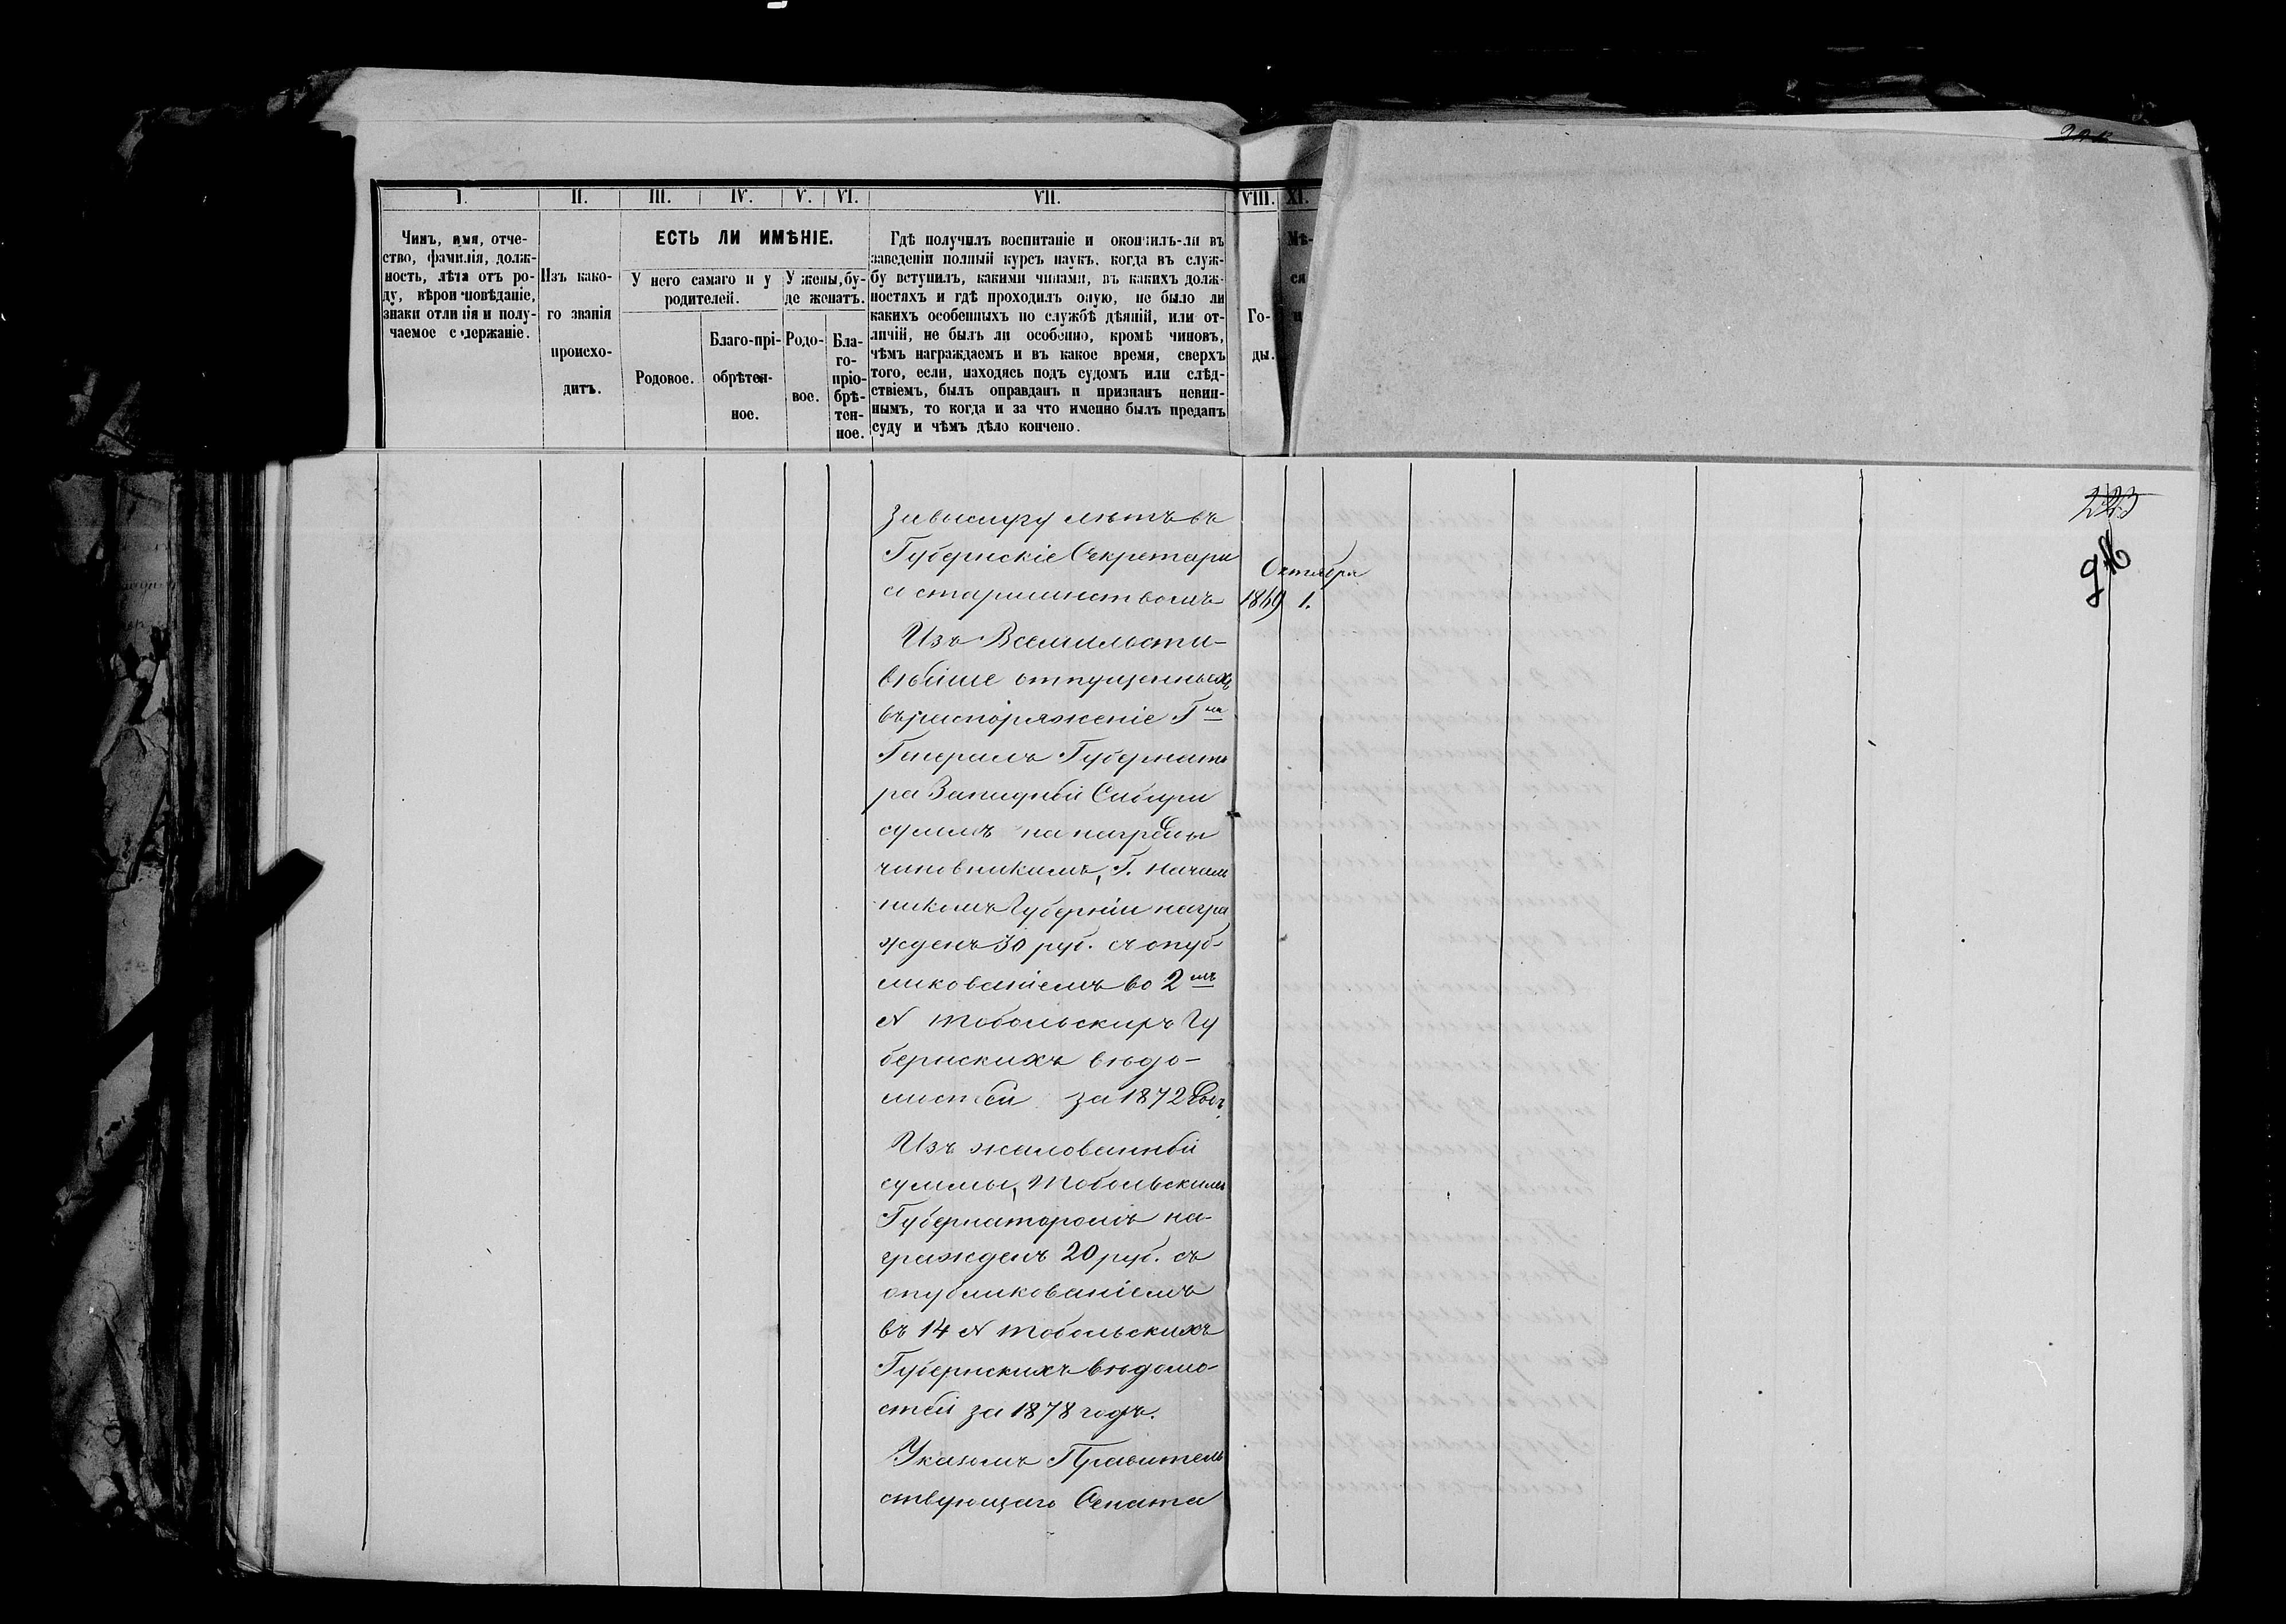 I. II. III. IV. V. VI. VII. VIII. XI.
Чинъ, имя, отче-
ство, фамилія, долж-
ность, лѣта отъ ро-
ду, вѣроисповѣданіе,
знаки отличія и полу-
чаемое содержаніе.
Изъ како-
го званія
происхо-
дитъ.
ЕСТЬ ЛИ ИМѢНІЕ.
У него самаго и у
родителей.
У жены, бу-
де женатъ.
Родовое.
Благо-прі-
обрѣтен-
ное.
Родо-
вое.
Бла-
го-
пріо-
брѣ-
тен-
ное.
Гдѣ получилъ воспитаніе и окончилъ-ли въ
заведеніи полный курсъ наукъ, когда въ служ-
бу вступилъ, какими чинами, въ какихъ долж-
ностяхъ и гдѣ проходилъ оную, не было ли
какихъ особенныхъ по службѣ дѣяній, или от-
личій, не былъ ли особенно, кромѣ чиновъ,
чѣмъ награждаемъ и въ какое время, сверхъ
того, если, находясь подъ судомъ или слѣд-
ствіемъ, былъ оправданъ и признанъ невин-
нымъ, то когда и за что именно былъ преданъ
суду и чѣмъ дѣло кончено.
Го-
ды.
Мѣ-
ся
ц
за выслугу лѣтъ въ
Губернскіе Секретари
со старшинствомъ
Октября
1869 1.
Изъ Всемилости-
вѣйше отпущенныхъ
въ распоряженіе Г на
Генералъ Губернато
ра Западной Сибири
суммъ на награды
чиновникамъ, Г. Началь
никомъ Губерніи награ
жденъ 30 руб. съ опуб-
ликованіемъ во 2 мъ
№ Тобольскихъ Гу
бернскихъ вѣдо-
мостей за 1872 годъ.
Изъ жалованной
суммы, Тобольскимъ
Губернаторомъ на-
гражденъ 20 руб. съ
опубликованіемъ
въ 14 № Тобольскихъ
Губернскихъ вѣдомо-
стей за 1878 годъ.
Указомъ Правитель
ствующаго Сената
223